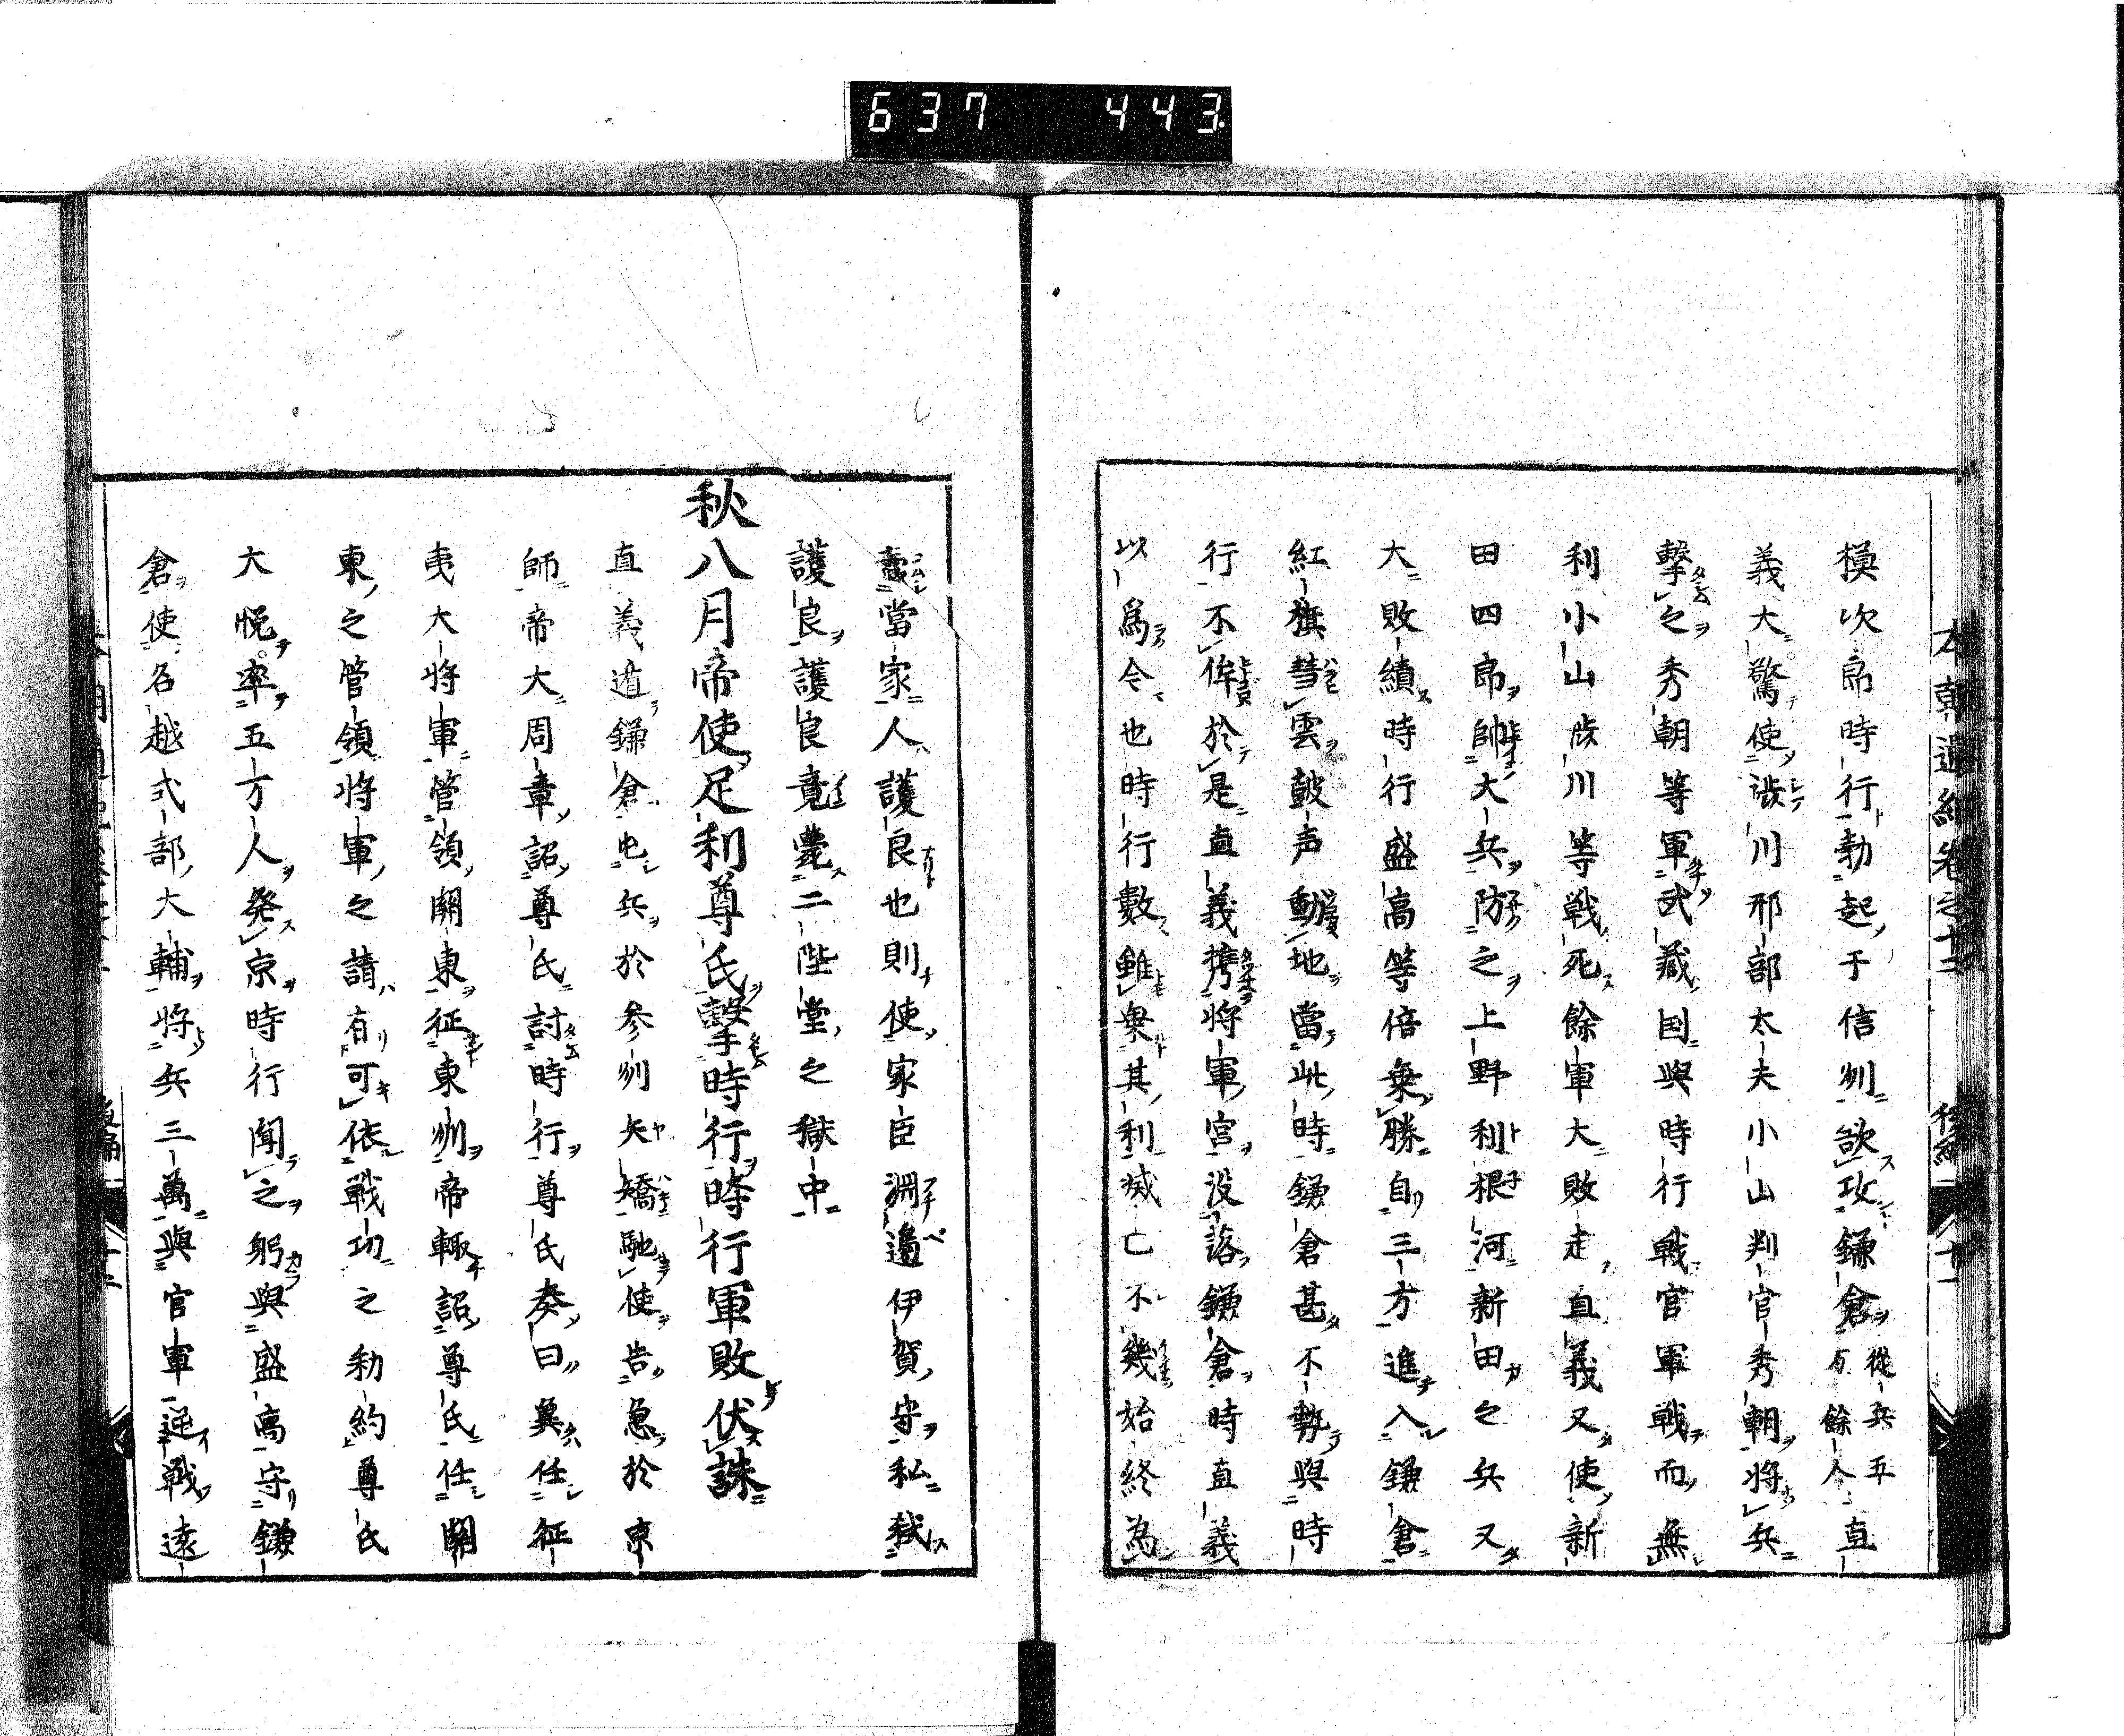 637 443
本朝通紀卷之十二 後編 十一
模次郎時行勃起于信州欲攻鎌倉從兵五万餘人直
義大驚使澁川刑部太夫小山判官秀朝將兵
擊之秀朝等軍武藏国與時行戰官軍戰而無
利小山澁川等戰死餘軍大敗走直義又使新
田四郎帥大兵防之上野利根河新田之兵又
大敗績時行盛高等倍乗勝自三方進入鎌倉
紅旗彗雲鼓声動地當此時鎌倉甚不勢與時
行不侔於是直義携将軍宮没落鎌倉時直義
以爲今也時行數雖奥其利滅亡不幾始終為
蠹當家人護良也則使家臣淵邉伊賀守私弑
護良護良竟薨二階堂之獄中
秋八月帝使足利尊氏擊時行時行軍敗伏誅
直義遁鎌倉屯兵於参州矢矯馳使告急於京
師帝大周章詔尊氏討時行尊氏奏曰冀任征
夷大将軍管領關東征東州帝輙詔尊氏任關
東之管領将軍之請有可依戰功之勅約尊氏
大悦率五万人発京時行聞之躬與盛高守鎌
倉使名越式部大輔将兵三萬與官軍逆戰遠